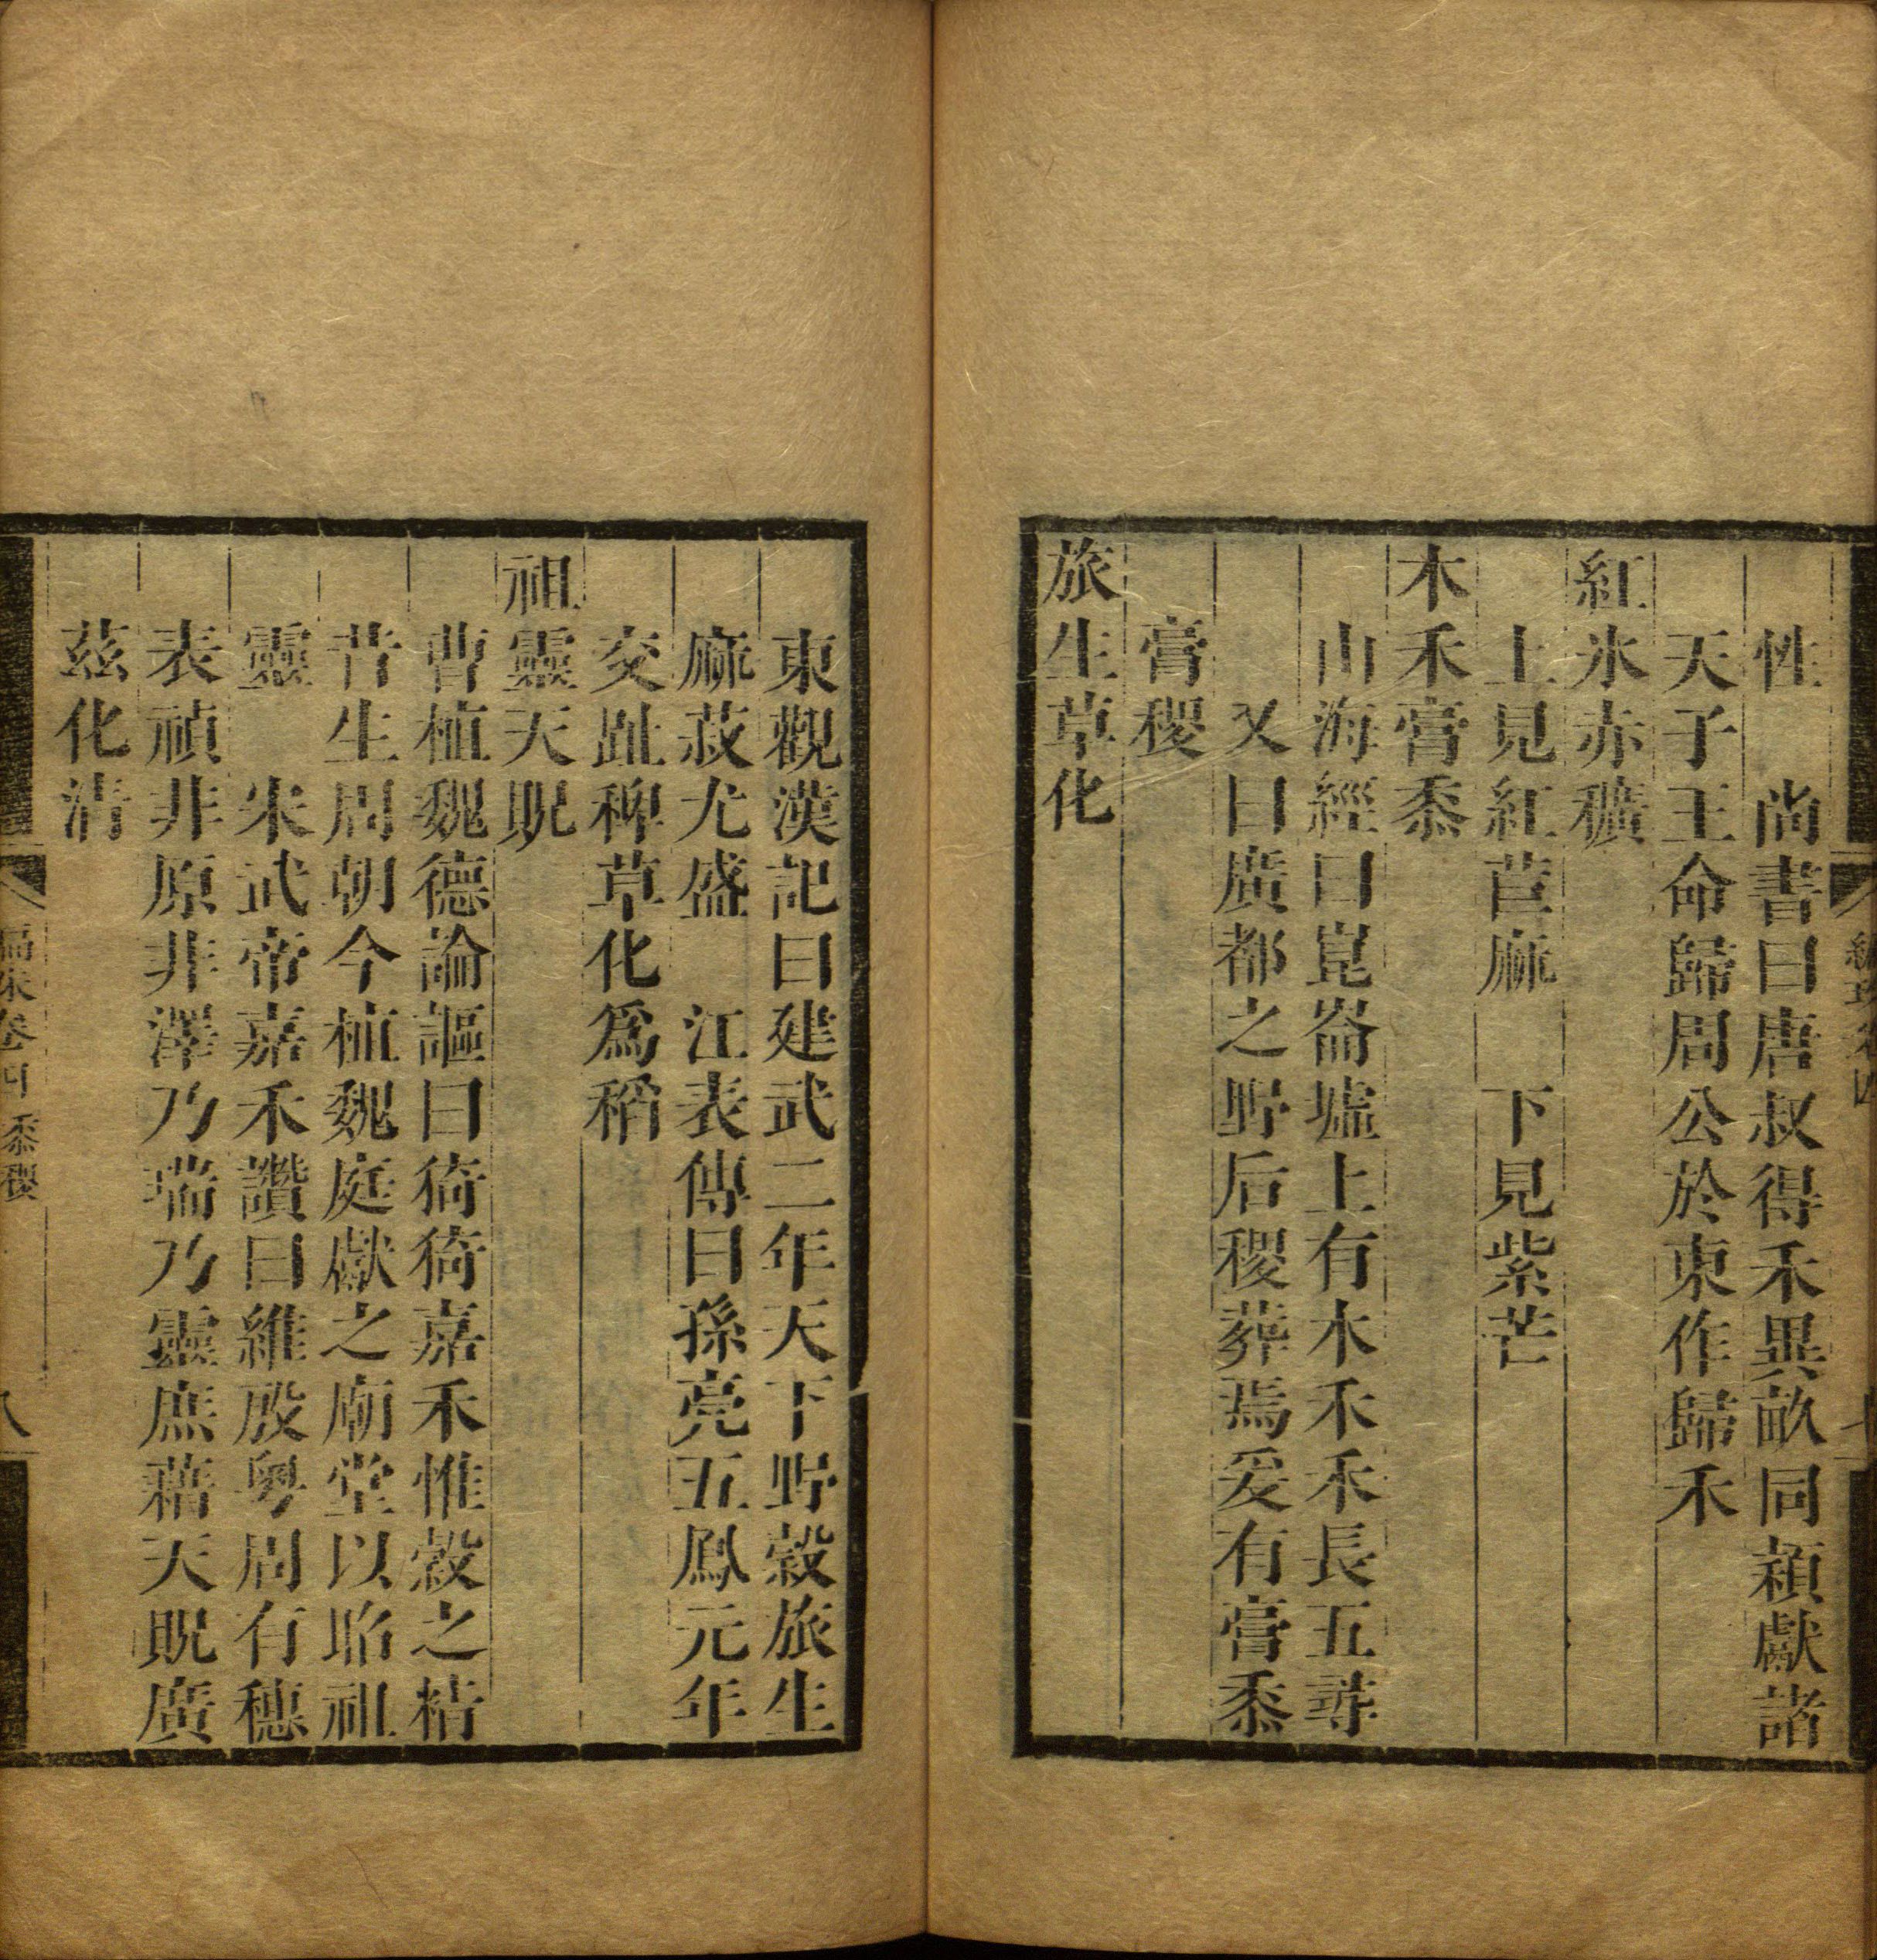 性　尚書曰唐叔得禾異畝同穎獻諸
天子王命歸周公於東作歸禾
紅氷赤穬
上見紅苣麻　下見紫芒
木禾膏黍
山海經曰崑崙墟上有木禾禾長五尋
又曰廣都之野后稷葬焉爰有膏黍
膏稷
旅生草化
東觀漢記曰建武二年天下野穀旅生
麻菽尤盛　江表傳曰孫亮五鳳元年
交趾稗草化爲稻
祖靈天貺
曹植魏德論謳曰猗猗嘉禾惟穀之精
昔生周朝今植魏庭獻之廟堂以昭祖
靈　宋武帝嘉禾讚曰維殷粵周有穗
表禎非原非澤乃瑞乃靈庶藉天貺廣
茲化清
卷四　黍稷
八